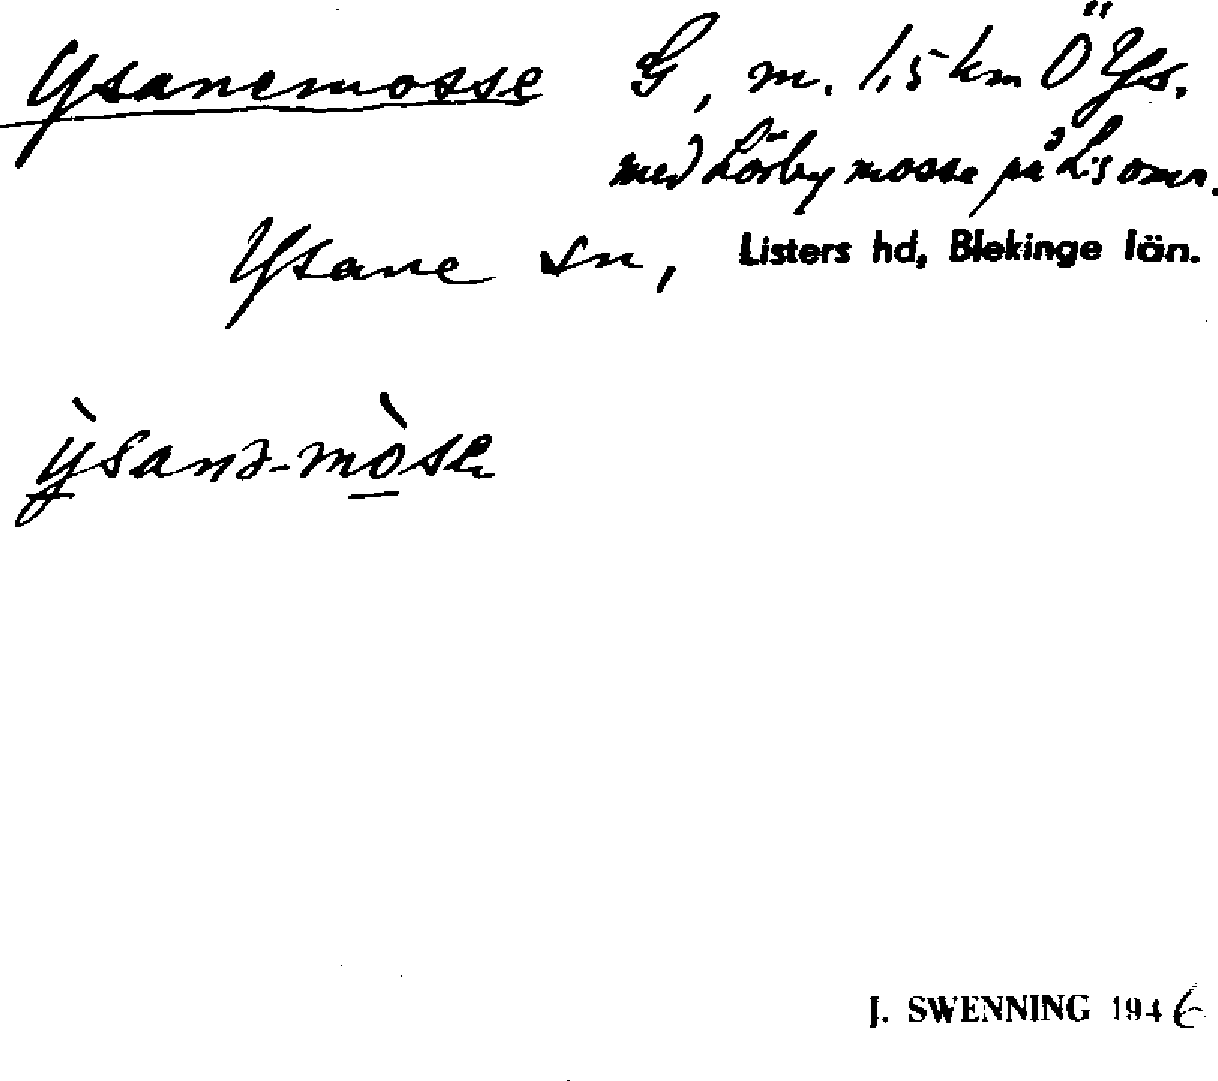 Ysanemosse G, m. 1,5 km Ö Ys.
med Lörby mosse på L:s omr.
Ysane sn, Listers hd, Blekinge län.
ỳsanə-mòse
J. SWENNING 1946